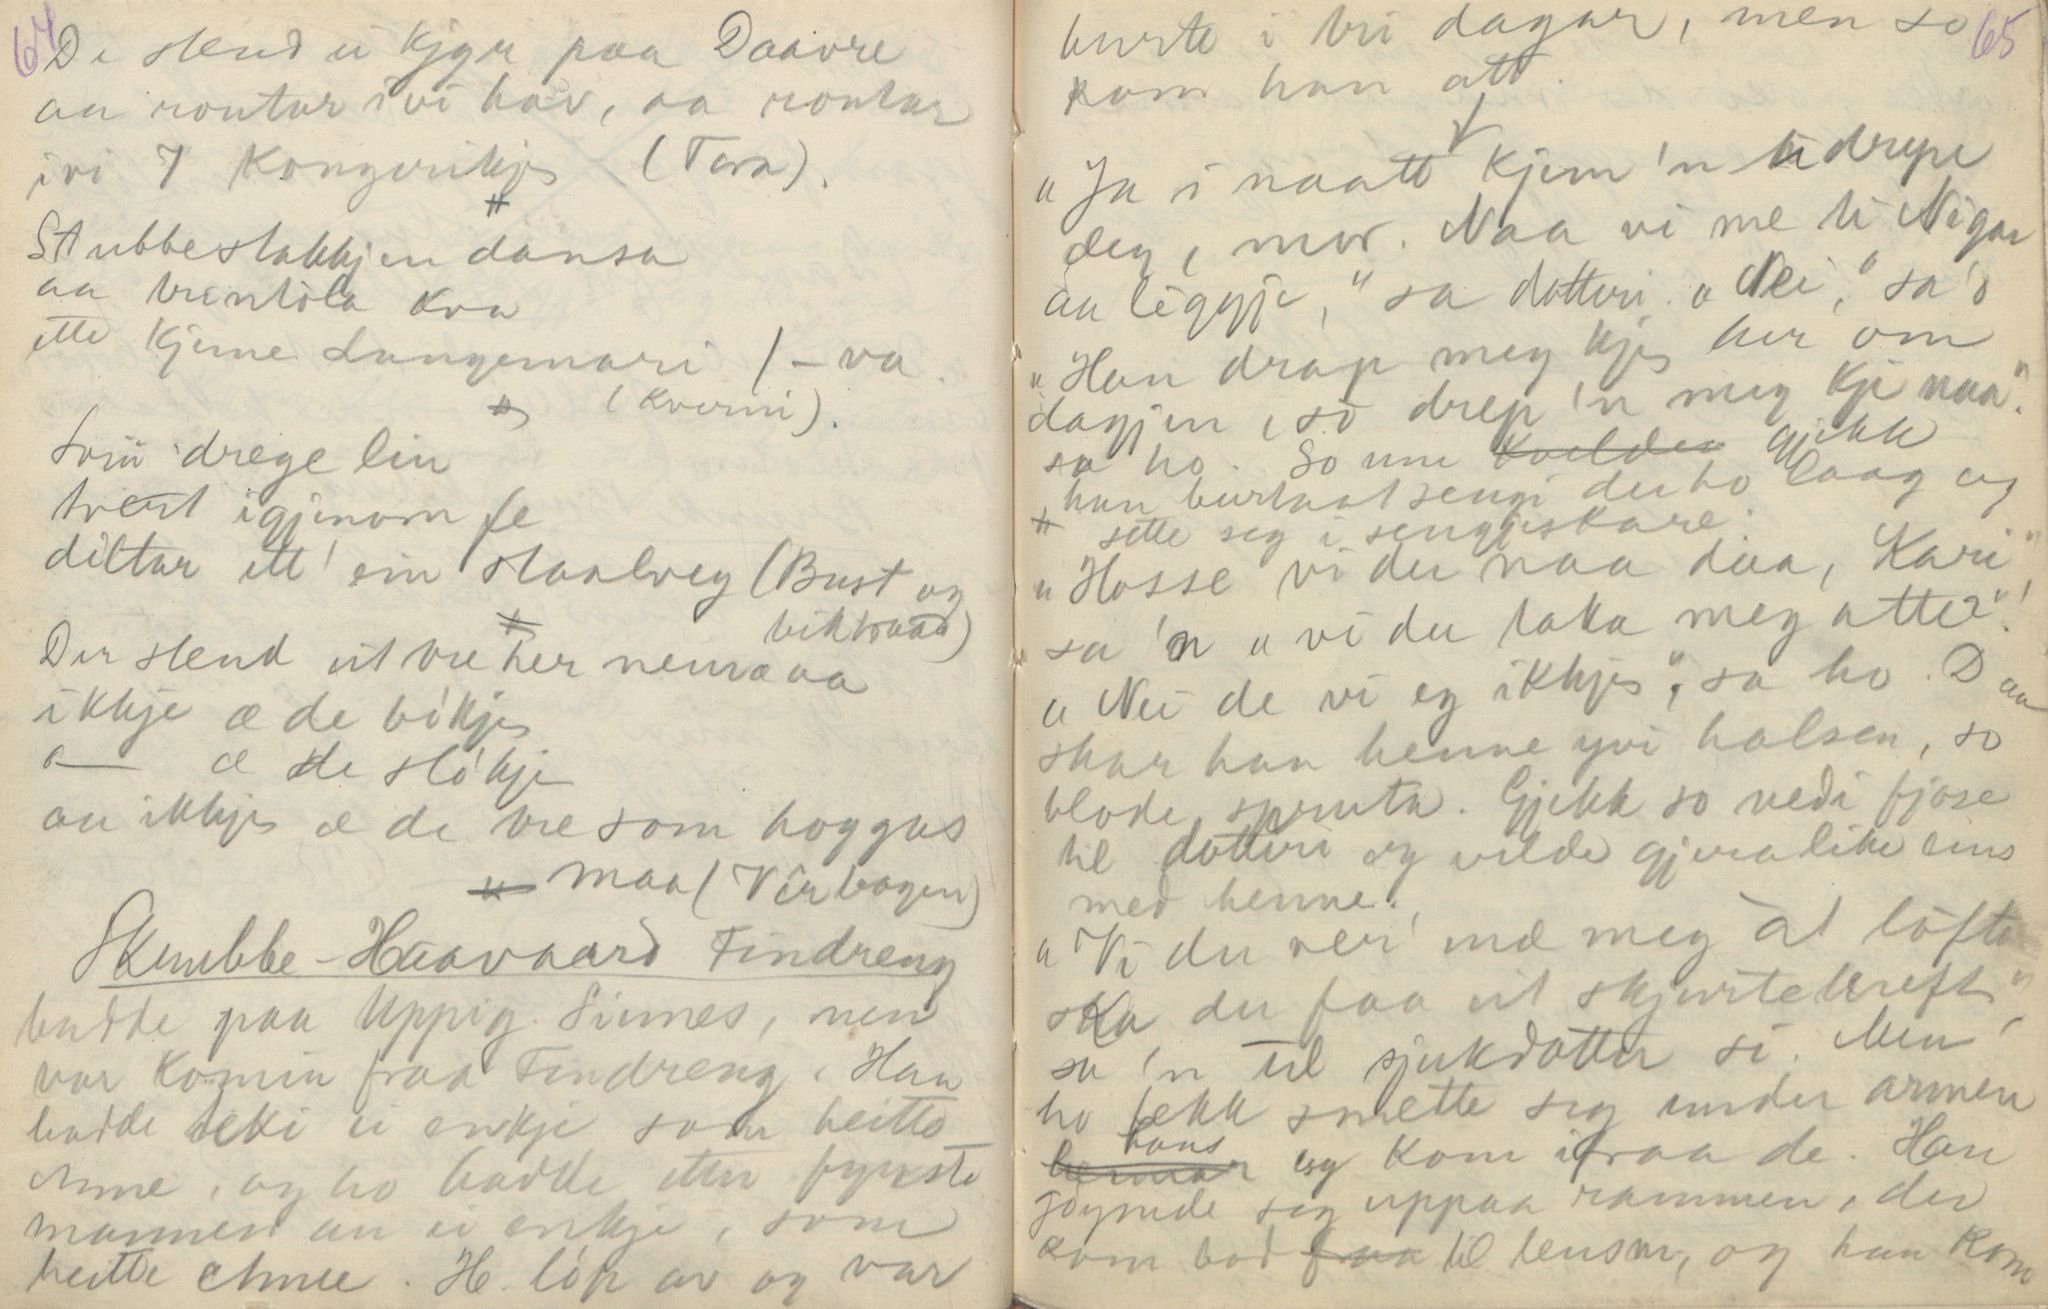 64
De stend ei kjyr paa Daavre
aa rautar ivi hav, aa rautar
ivi 7 Kongerikje (Tora).
#
Stubbestakkjen dansa
aa trintola kva
ette kjeme Langemari /-va
(kverni).
#
Svin drege lin
tvert igjenom
diltar ett' ein staalveg (Bust og
biktraad)
#
Der stend eit tre her
ikkje æ de bikje
a— æ de slikje
aa ikkje æ de tre som hoggas
maa (Verbogen)
#
Skrubbe-Haavaard Findreng
budde paa Uppig. Sinnes, men
var komin fraa Findreng. Han
hadde teki ei enkje som heitte
Anne, og ho hadde etter fyrste
mannen au ei enkje, som
heitte Anne. H. löp av og var
65
burte i tri dagar, men so
kom han att.
"Ja i naatt kjem 'n te drepe
deg, mor. Naa vi me ti Nigar
aa liggje," sa dotteri. "Nei," sa 'o
"Han drap meg kje her om
dagjen, so drep 'n meg kje naa".
sa ho. So um kvelden gjekk
han burtaat sengi der ho laag og
# sette seg i sengjeskare.
"Hosse vi du naa daa, Kari",
sa 'n "vi du taka meg atte?"
"Nei de vi eg ikkje", sa ho. Daa
skar han henne yvi halsen, so
blode spruta. Gjekk so nedi fjose
til dotteri og vilde gjera like eins
med henne.
"Vi du ver' mæ meg åt löfte
ska du faa eit skjurtekneft"
sa 'n til sjukdotter si. Men
ho fekk smette seg under armen
hans og kom ifraa de. Han
göymde seg uppaa rammen, der
kom bod fraa til lensm, og han kom